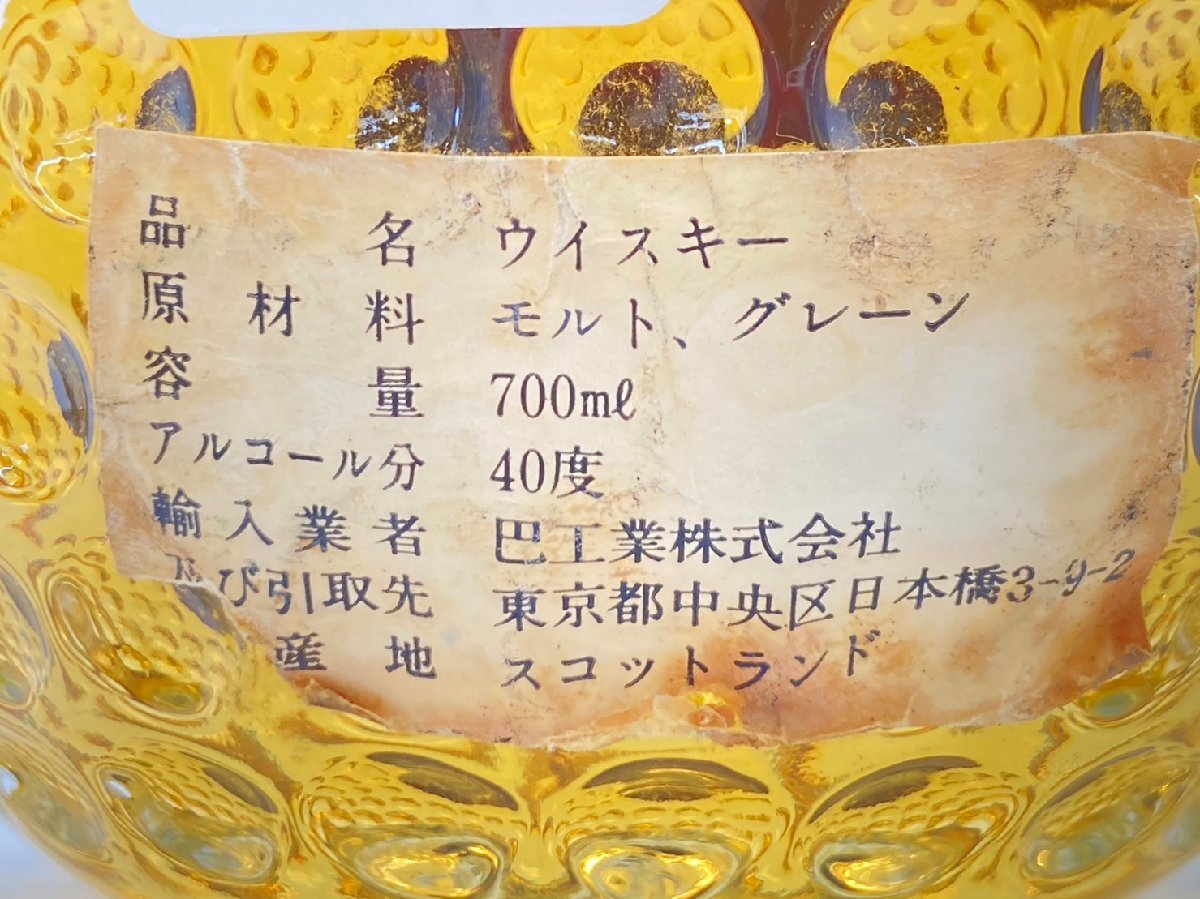 品名 ウイスキー
原材料 モルト、グレーン
容量 700mℓ
アルコール分 40度
輸入業者 巴工業株式会社
及び引取先 東京都中央区日本橋3-9-2
産地 スコットランド